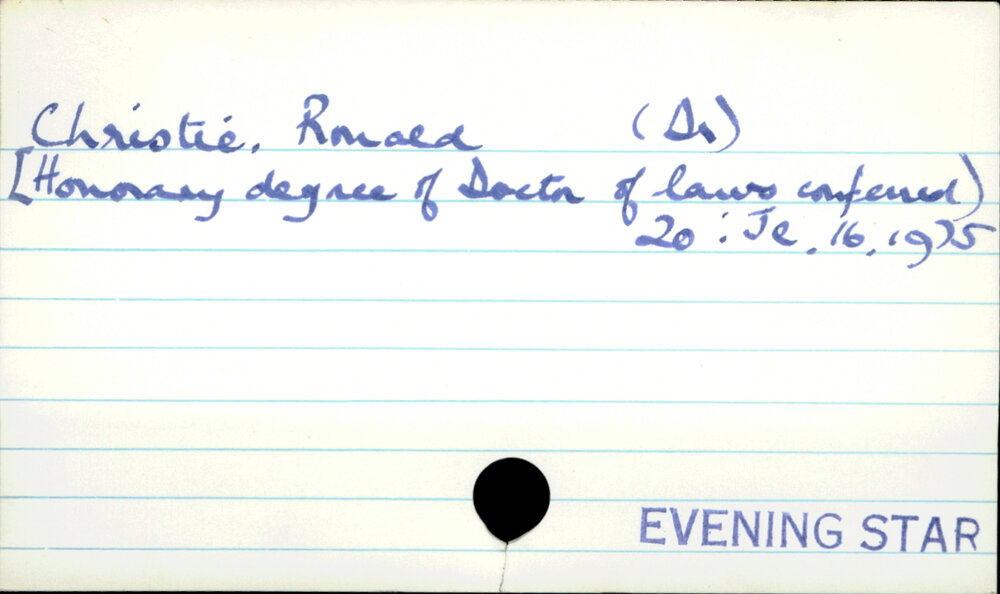 Christie. Ronald (Dr)
[Honorary degree of Doctor of laws conferred)
20 : Je. 16, 1975
EVENING STAR